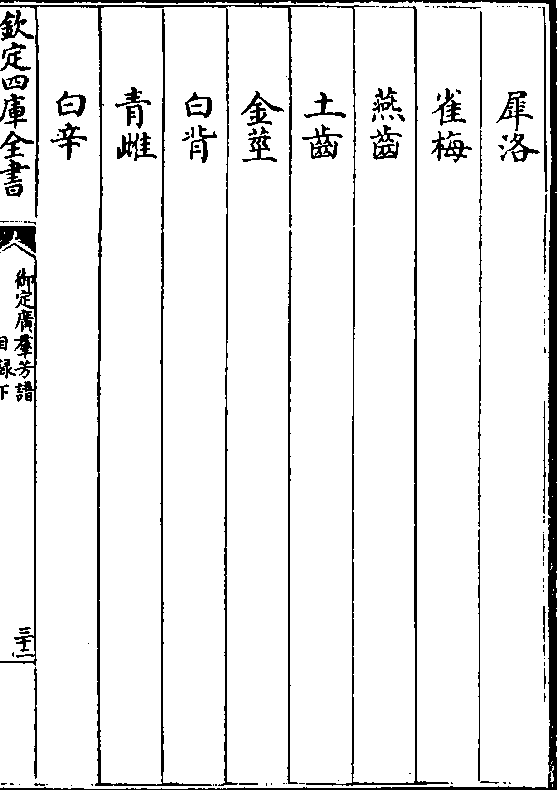 犀洛
雀梅
燕齒
土齒
金莖
白背
青雌
白辛
欽定四庫全書
御定廣羣芳譜
目録下
三十二